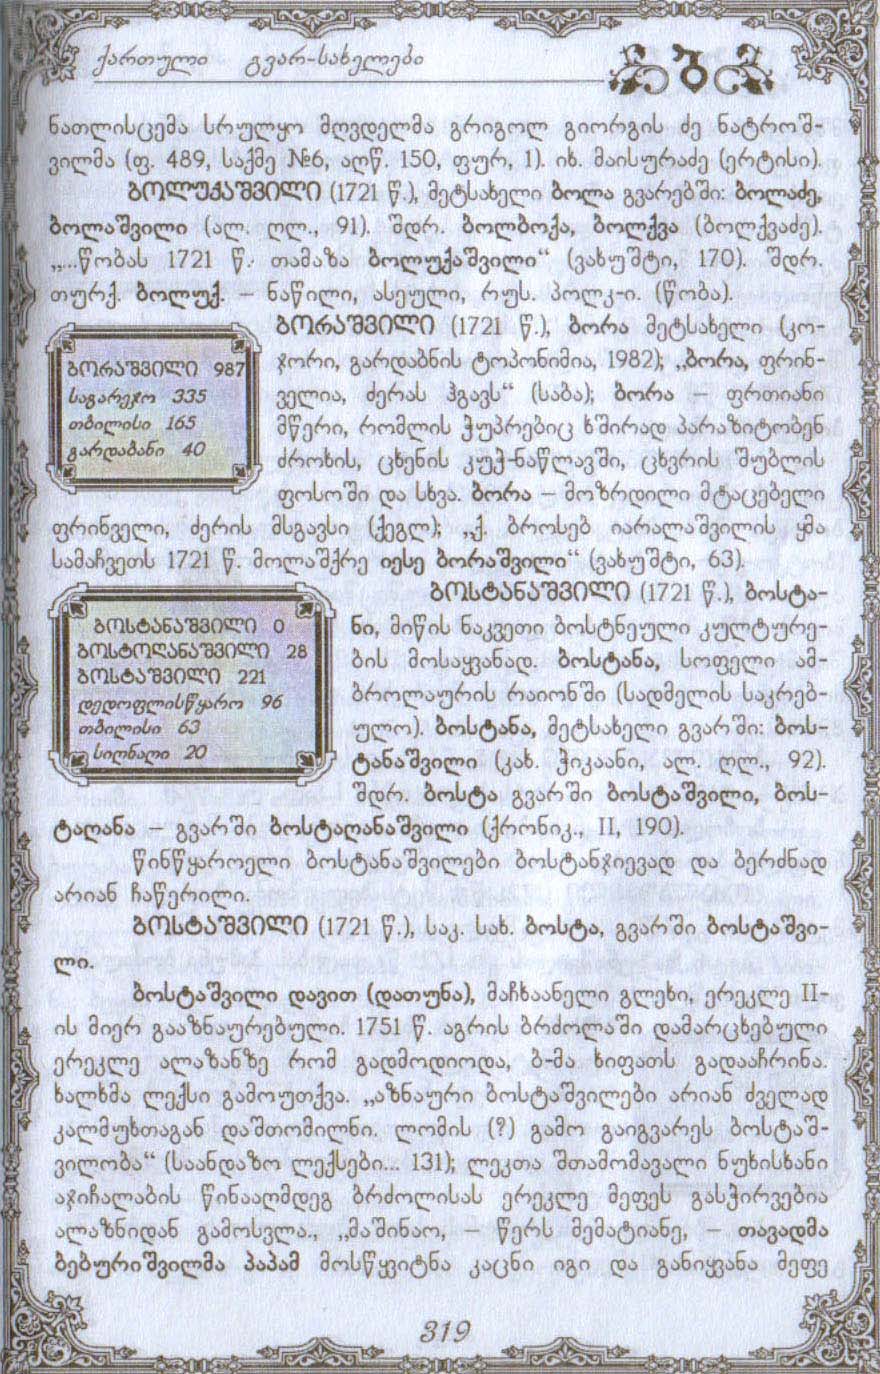 ქართული გვარ-სახელები
ბ
ნათლისცემა სრულყო მღვდელმა გრიგოლ გიორგის ძე ნატროშ-
ვილმა (ფ. 489, საქმე №6, აღწ. 150, ფურ, 1). იხ. მაისურაძე (ერტისი).
ბოლუკაშვილი (1721 წ.), მეტსახელი ბოლა გვარებში: ბოლაძე,
ბოლაშვილი (ალ. ღლ., 91). შდრ. ბოლბოქა, ბოლქვა (ბოლქვაძე).
„...წობას 1721 წ. თამაზა ბოლუქაშვილი“ (ვახუშტი, 170). შდრ.
თურქ. ბოლუქ. – ნაწილი, ასეული, რუს. პოლკ-ი. (წობა).
ბორაშვილი (1721 წ.), ბორა მეტსახელი (კო-
ჯორი, გარდაბნის ტოპონიმია, 1982); „ბორა, ფრინ-
ველია, ძერას ჰგავს“ (საბა); ბორა – ფრთიანი
მწერი, რომლის ჭუპრებიც ხშირად პარაზიტობენ
ძროხის, ცხენის კუჭ-ნაწლავში, ცხვრის შუბლის
ფოსოში და სხვა. ბორა – მოზრდილი მტაცებელი
ფრინველი, ძერის მსგავსი (ქეგლ); „ქ. ბროსებ იარალაშვილის ყმა
სამაჩვეთს 1721 წ. მოლაშქრე იესე ბორაშვილი“ (ვახუშტი, 63).
ბორაშვილი 987
საგარეჯო 335
თბილისი 165
გარდაბანი 40
ბოსტანაშვილი (1721 წ.), ბოსტა-
ნი, მიწის ნაკვეთი ბოსტნეული კულტურე-
ბის მოსაყვანად. ბოსტანა, სოფელი ამ-
ბროლაურის რაიონში (სადმელის საკრებ-
ულო). ბოსტანა, მეტსახელი გვარში: ბოს-
ტანაშვილი (კახ. ჭიკაანი, ალ. ღლ., 92).
შდრ. ბოსტა გვარში ბოსტაშვილი, ბოს-
ტაღანა – გვარში ბოსტაღანაშვილი (ქრონიკ., II, 190).
ბოსტანაშვილი 0
ბოსტოღანაშვილი 28
ბოსტაშვილი 221
დედოფლისწყარო 96
თბილისი 63
სიღნაღი 20
წინწყაროელი ბოსტანაშვილები ბოსტანჯიევად და ბერძნად
არიან ჩაწერილი.
ბოსტაშვილი (1721 წ.), საკ. სახ. ბოსტა, გვარში ბოსტაშვი-
ლი.
ბოსტაშვილი დავით (დათუნა), მაჩხაანელი გლეხი, ერეკლე II-
ის მიერ გააზნაურებული. 1751 წ. აგრის ბრძოლაში დამარცხებული
ერეკლე ალაზანზე რომ გადმოდიოდა, ბ-მა ხიფათს გადააჩრინა.
ხალხმა ლექსი გამოუთქვა. „აზნაური ბოსტაშვილები არიან ძველად
კალმუხთაგან დაშთომილნი, ლომის (?) გამო გაიგვარეს ბოსტაშ-
ვილობა“ (საანდაზო ლექსები... 131); ლეკთა შთამომავალი ნუხისხანი
აჯიჩალაბის წინააღმდეგ ბრძოლისას ერეკლე მეფეს გასჭირვებია
ალაზნიდან გამოსვლა., „მაშინაო, – წერს მემატიანე, – თავადმა
ბებურიშვილმა პაპამ მოსწყვიტნა კაცნი იგი და განიყვანა მეფე
319